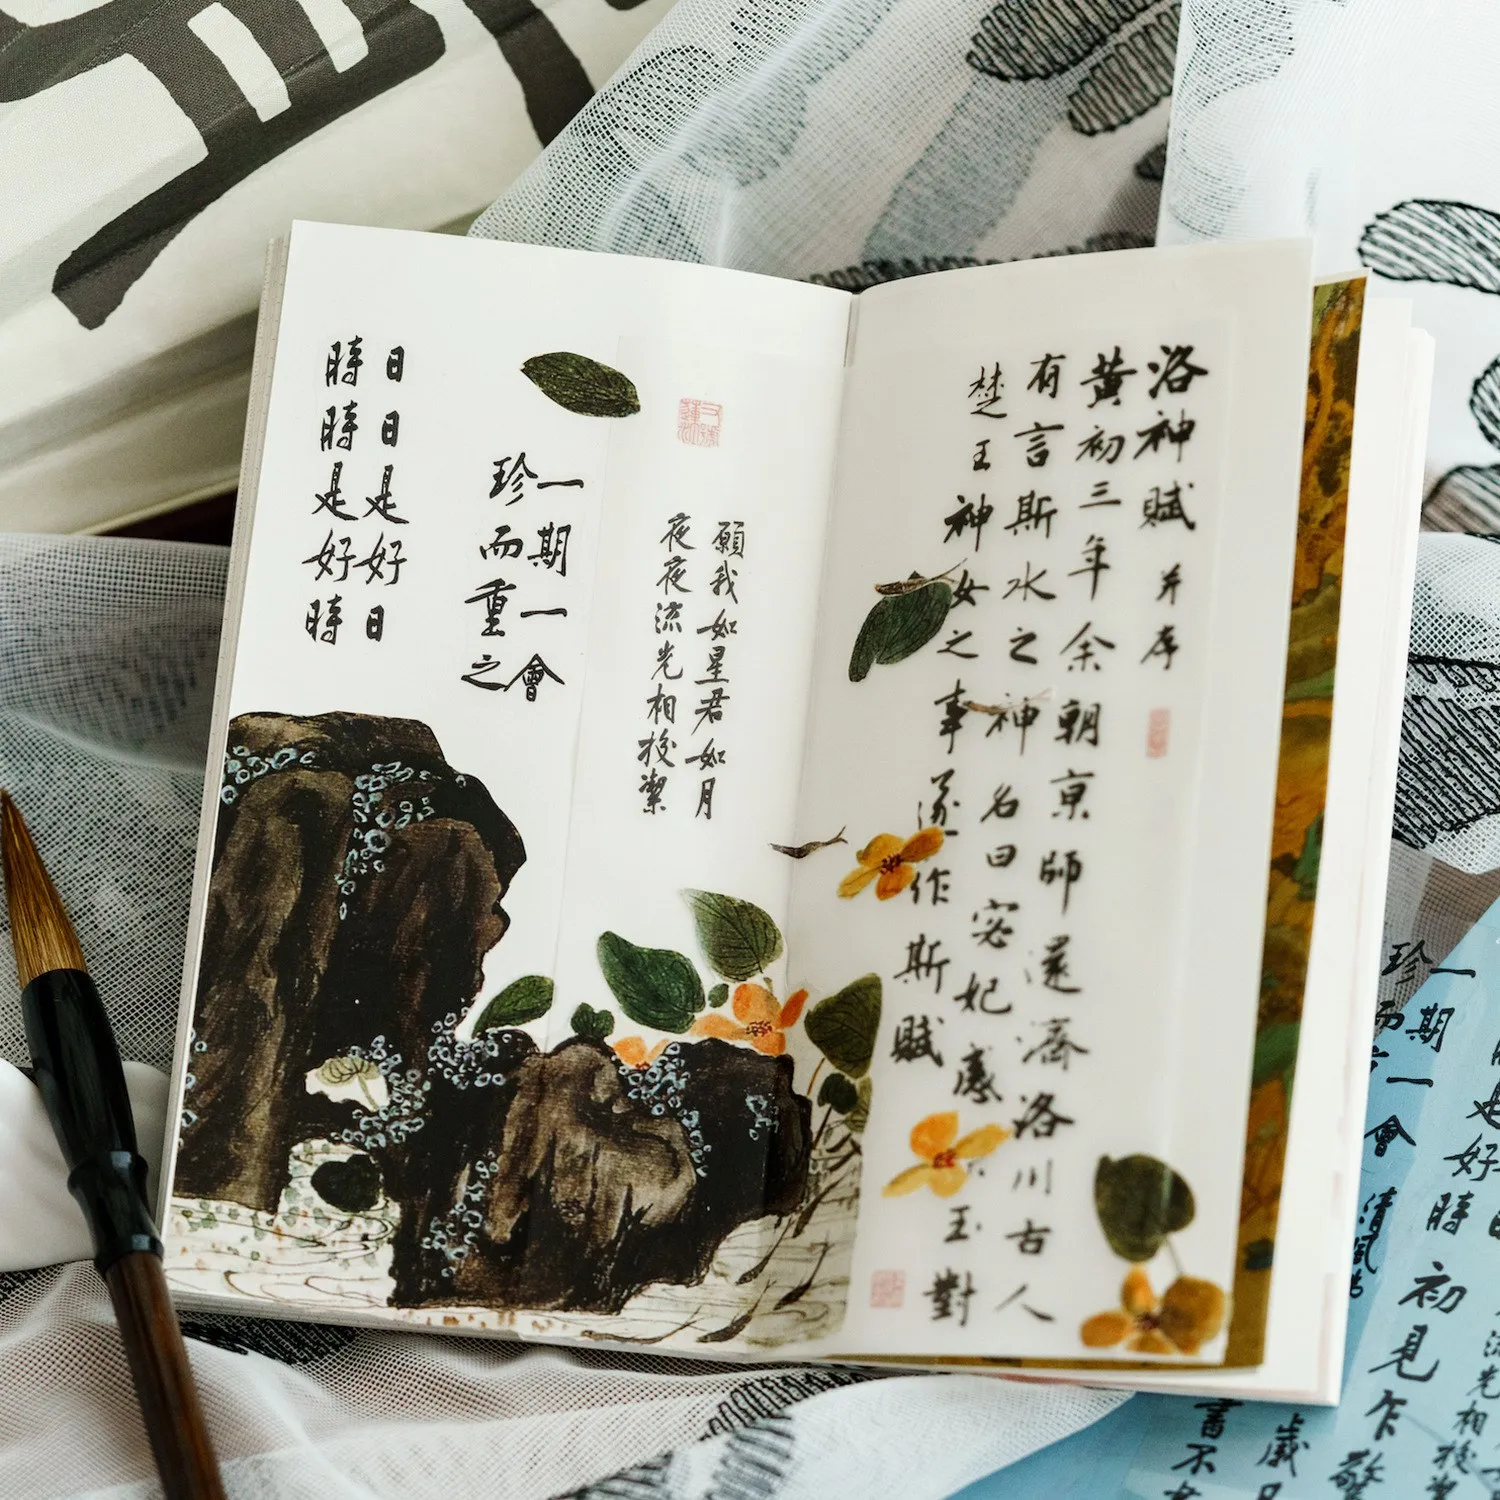 洛神賦 并序
黃初三年余朝京師還濟洛川古人
有言斯水之神名曰宓妃感玉對
楚王神女之事遂作斯賦
願我如星君如月
夜夜流光相皎潔
一期一會
珍而重之
日日是好日
時時是好時
流光相皎
是好時
初見乍驚
一期一會
珍而
清風
歲
書不